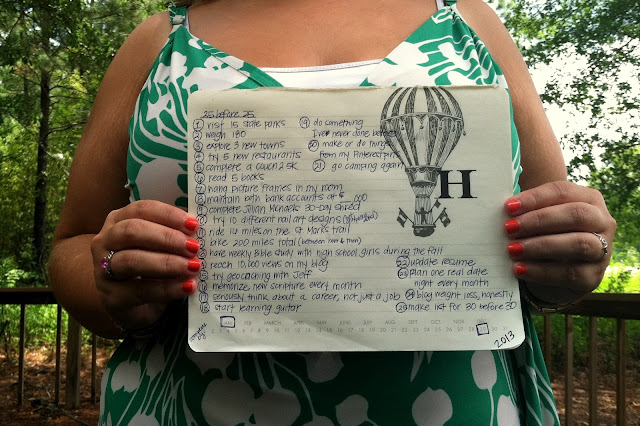 25 before 25
1 visit 15 state parks
2 weigh 180
3 explore 3 new towns
4 try 5 new restaurants
5 complete a couch 2 5K
6 read 5 books
7 hang picture frames in my room
8 maintain both bank accounts at $ ,000
9 complete Jillian Michaels 30-day shred
10 try 10 different nail art designs
11 ride 16 miles on the St Marks trail
12 bike 200 miles total (between now & then)
13 have weekly Bible study with high school girls during the fall
14 reach 10,000 views on my blog
15 try geocaching with Jeff
16 memorize new scripture every month
17 seriously think about a career, not just a job
18 start learning guitar
19 do something I've never done before
20 make or do things from my Pinterest
21 go camping again
22 update resume
23 Plan one real date night every month
24 blog weight loss, honestly
25 make list for 30 before 30
H
FEBRUARY MARCH APRIL MAY JUNE JULY AUGUST
2013